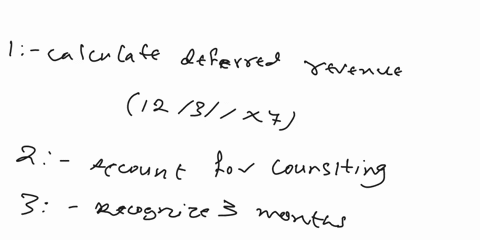 1:- calculate deferred revenue
(12/31/x7)
2:- Account for counsiting
3:- Recognize 3 months